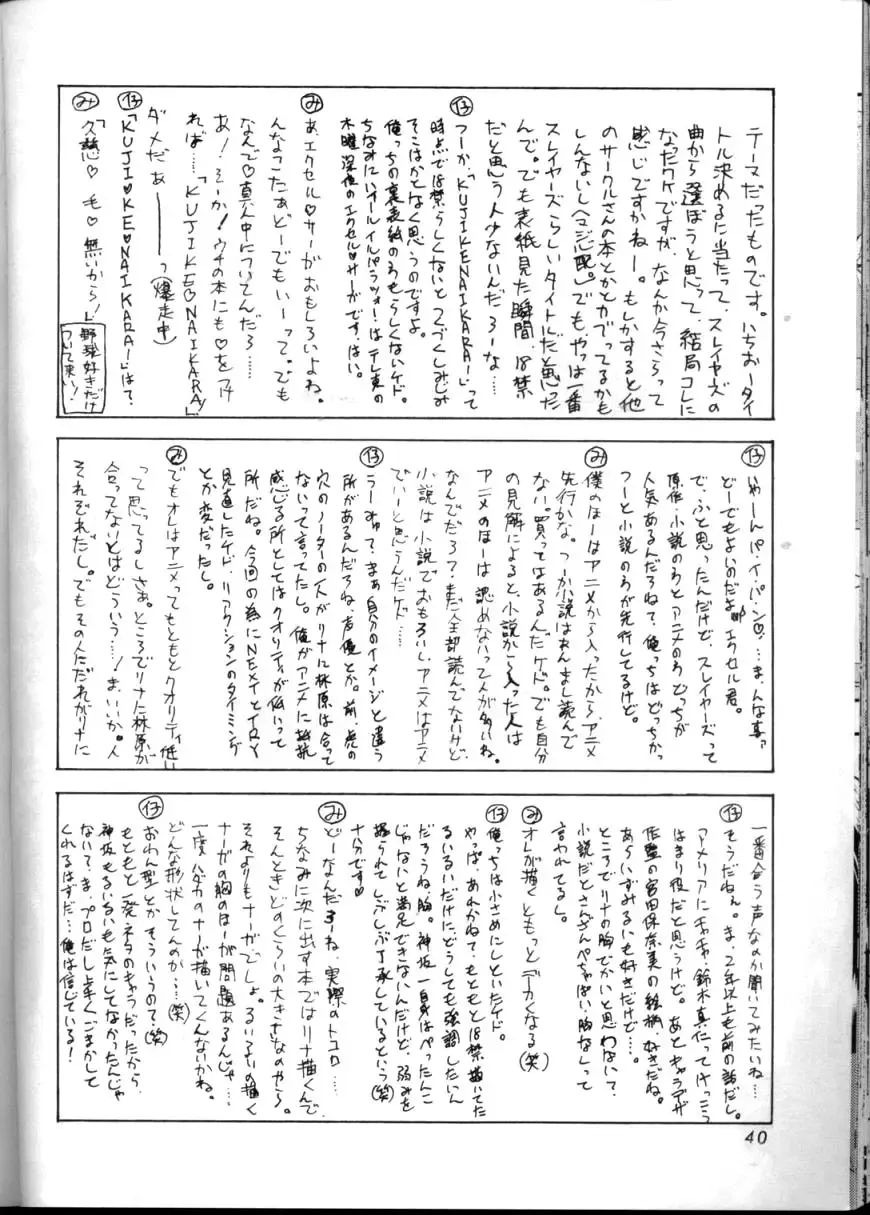 テーマだったものです。いちおータイ
トル決めるに当たって、スレイヤーズの
曲から選ぼうと思って、結局コレに
なったワケですが、なんか今さらって
感じですかねー。もしかすると他
のサークルさんの本とかとカブってるかも
しんないし(マジ心配。)でも、やっぱ一番
スレイヤーズらしいタイトルだと思った
んで。でも表紙見た瞬間、18禁
だと思う人少ないんだろーな…
仔 つーか、「KUJIKENAIKARA!」って
時点で18禁らしくないとつくづくしみじみ
そこはかとなく思うのですよ。
俺っちの裏表紙のわもらしくないケド。
ちなみに「オールイルパラッツォ!」はテレ東の
木曜深夜のエクセル♡サーガです、はい。
み あ、エクセル♡サーガおもしろいよね。
んなこたぁどーでもいーって。でも
なんで♡真ん中についてんだろ……
あ!そーか!ウチの本にも♡をつけ
れば…「KUJIKE♡NAIKARA!」
ダメだぁ――――っ(爆走中)
仔 「KUJI♡KE♡NAIKARA!」は?
み 「久慈♡毛♡無いから!」
野球好きだけ
ついて来い!
仔 いやーんパ・イ・パ・ン♡?…ま、んな事
どーでもよいのだよ エクセル君。
で、ふと思ったんだけど、スレイヤーズって
原作・小説のわとアニメのわどっちが
人気あるんだろね?俺っちはどっちかっ
つーと小説のわが先行してるけど。
み 僕のほーはアニメから入ったから、アニメ
先行かな。つーか小説はあんまし読んで
ない。買ってはあるんだケド。でも自分
の見解によると、小説から入った人は
アニメのほーは認めないって人が多いね。
なんでだろ?まだ全部読んでないけど、
小説は小説でおもろいし、アニメはアニメ
でいーと思うんだケド……
仔 うーみゅ?まぁ自分のイメージと違う
所があるんだろね、声優とか。前、虎の
穴のノーターの人がリナに林原は合って
ないって言ってたし。俺がアニメに抵抗
感じる所としてはクオリティが低いって
所だね。今回の為にNEXTとTRY
見直したケド、リアクションのタイミング
とか変だったし。
み でもオレはアニメってもともとクオリティ低い
って思ってるしさぁ。ところでリナに林原が
合ってないとはどういう…!ま、いいか。人
それぞれだし。でもその人だれがリナに
一番合う声なのか聞いてみたいね…
仔 そうだねぇ。ま、2年以上も前の話だし。
アメリアにチャチャ・鈴木真仁ってけっこう
はまり役だと思うけど。あとキャラデザ
作監の宮田保奈美の絵柄、好きだね。
あらいずみるいも好きだけど…。
ところでリナの胸でかいと思わない?
小説だとさんざんぺちゃぱい胸なしって
言われてるし。
み オレが描くともっとデーカくなる(笑)
仔 俺っちは小さめにしといたケド。
やっぱ、あれかね?もともと18禁描いてた
るいるいだけに、どうしても強調したいん
だろうね、胸。神坂一自身はぺったんこ
じゃないと満足できないんだけど、弱みを
握られてしぶしぶ了承しているという(笑)
十分です♡
み どーなんだろーね、実際のトコロ……
ちなみに次に出す本ではリナ描くんで、
そんときどのくらいの大きさなのやら。
それよりもナーガでしょ。るいるいの描く
ナーガの胸のほーが問題あるんじゃ……
一度ヌードのナーガ描いてくんないかね。
どんな形状してんのか……(笑)
仔 おわん型とかそういうので(笑)
もともと一発ネタのキャラだったから、
神坂もるいるいも気にしてなかったんじゃ
ない?ま、プロだし上手くごまかして
くれるはずだ…俺は信じている!
40